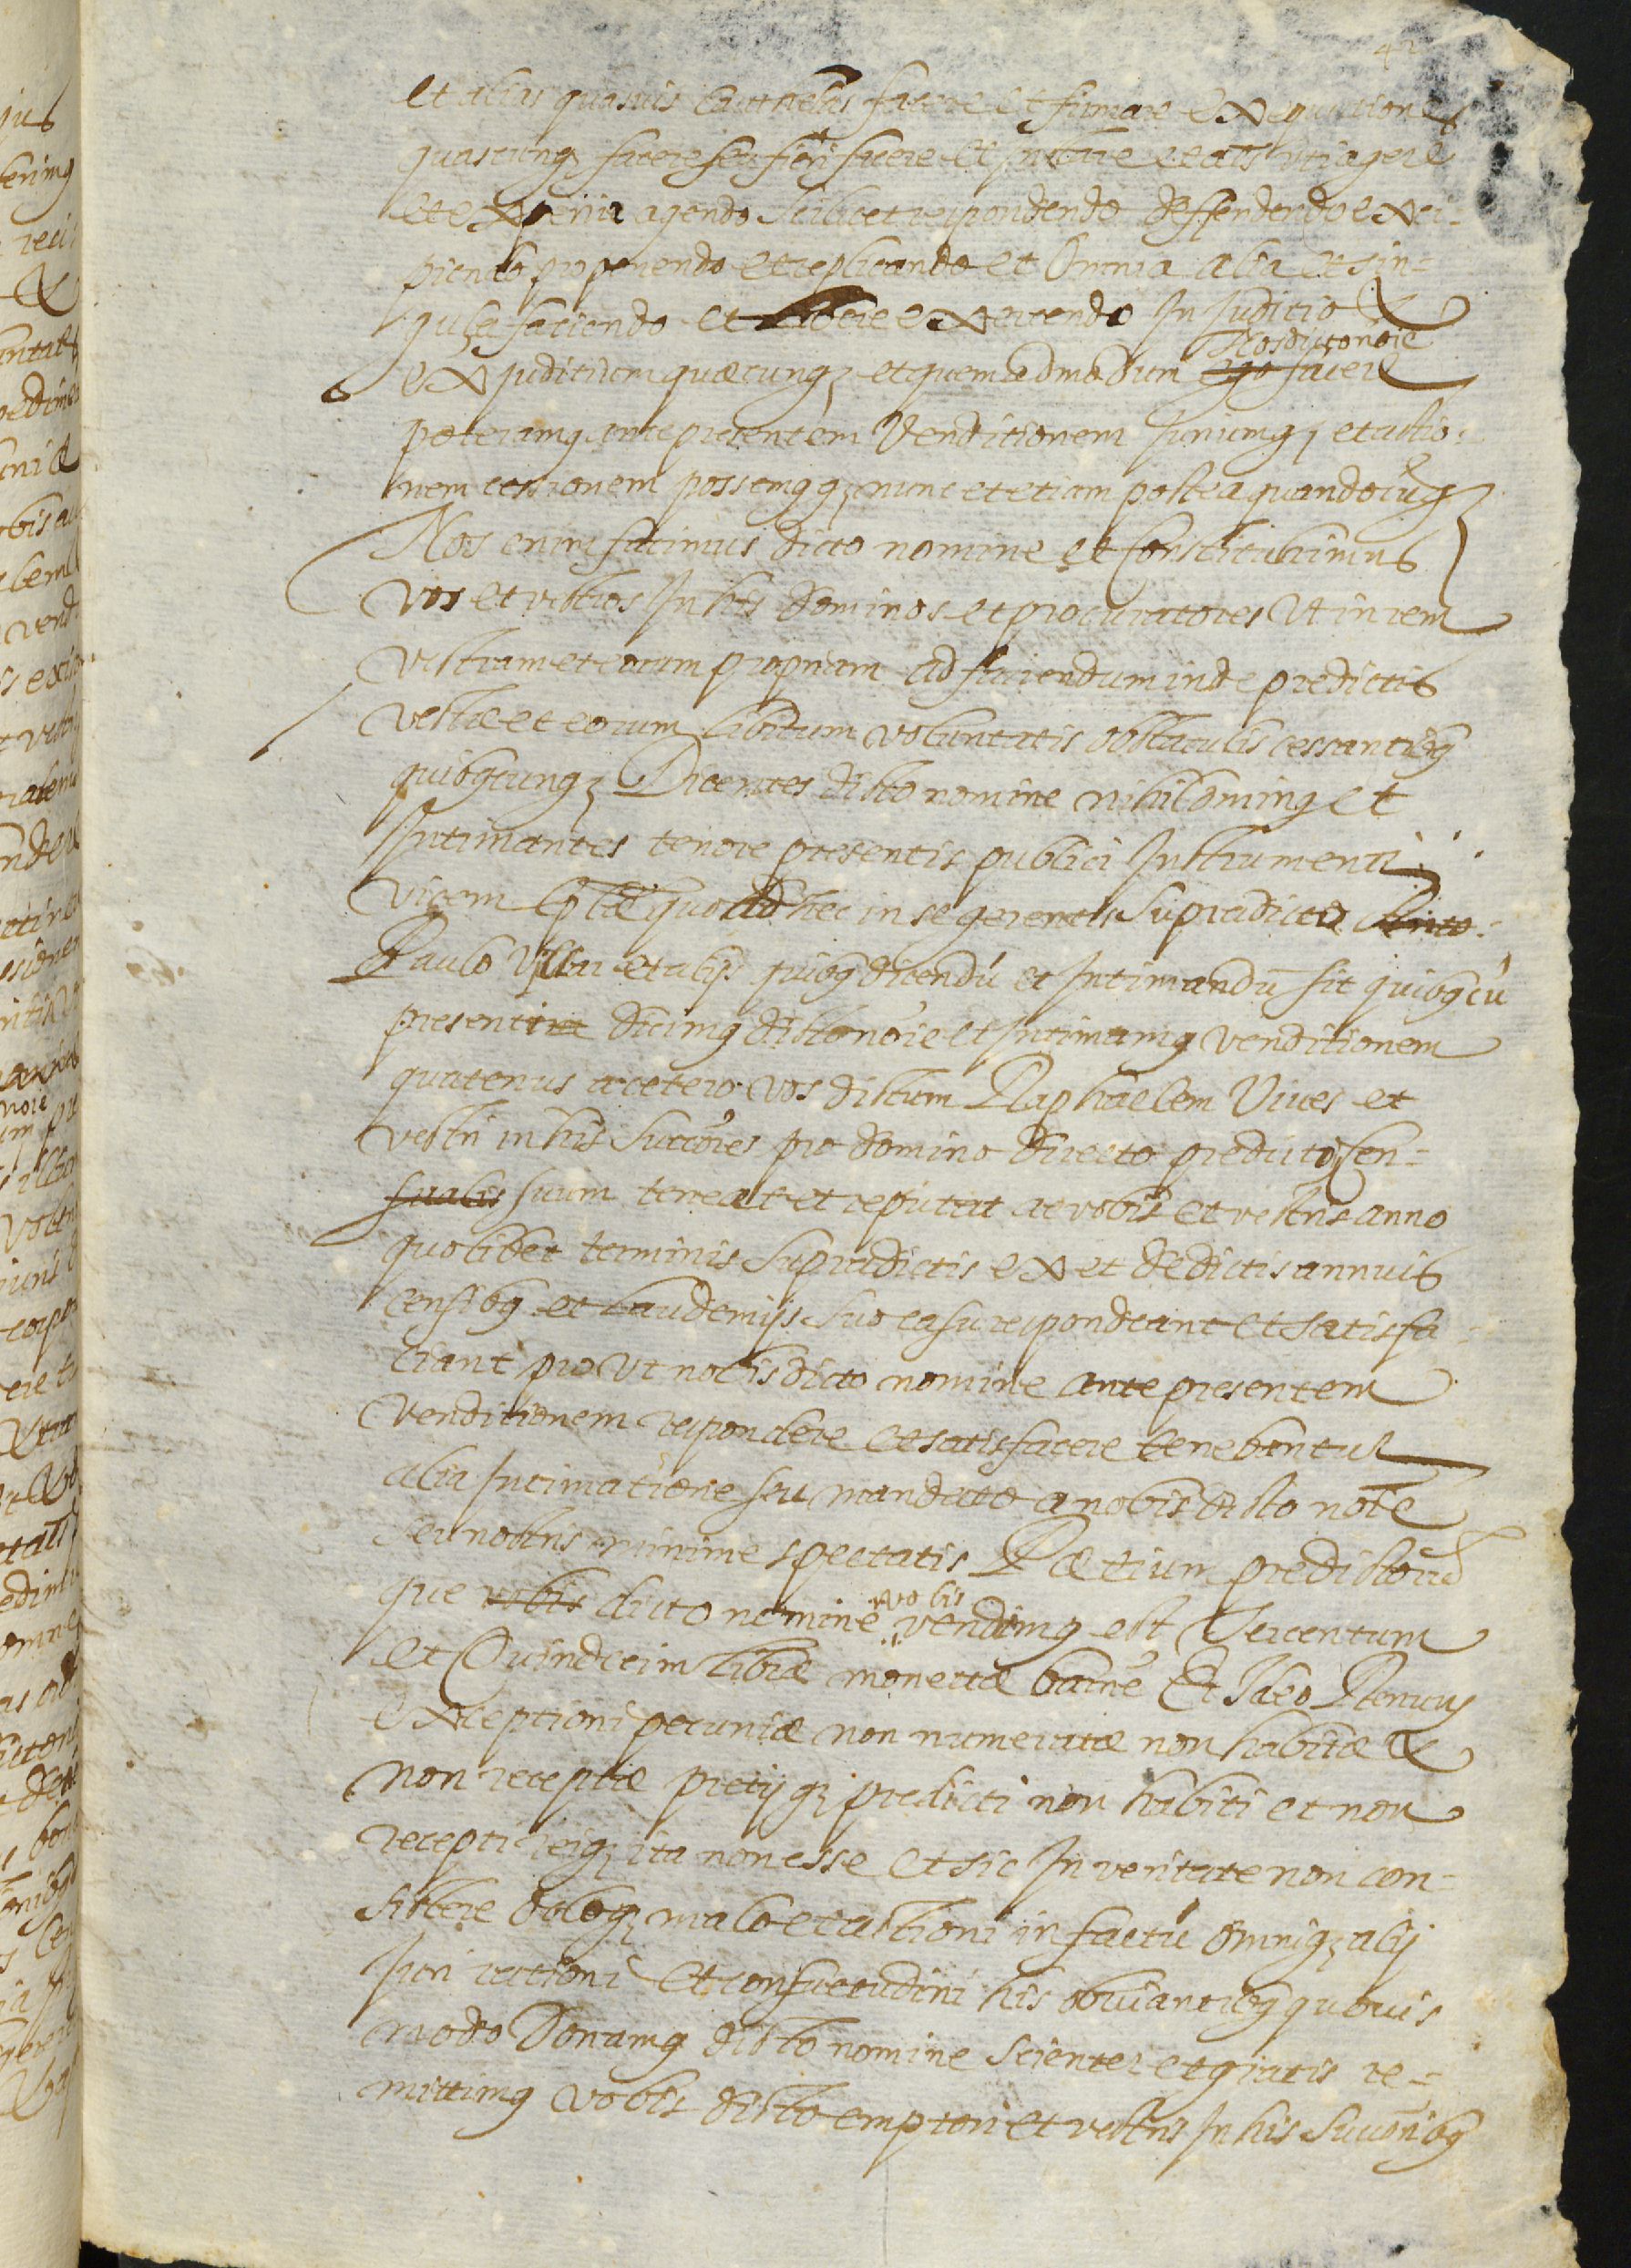 et alias quasvis Cauthelas facere et firmare exequutiones
quascunqz facere seu fieri facere et instare et als uti agere
et experiri agendo scilicet respondendo deffendendo exci-
piendo proponendo et replicando et Omnia alia et sin-
gula faciendo et libere exercendo In Juditio &
ex juditium quæcunqz et quemadmodum ego Nos dicto noie facere
poteramq ante presentem Venditionem juriumqz et actio-
nem cessionem possemqqz nunc et etiam postea quandocuqz
Nos enim facimus dicto nomine et Constituhimus
vos et vestros In his dominos et procuratores Ut in rem
vestram et eorum propriam ad faciendum inde predictis
vestræ et eorum libitum voluntatis obstaculis cessantibq
quibqcunqz Dicentes dicto nomine nihilominq et
Intimantes tenore presentis publici Instrumenti
vicem Eplæ quo ad hec in se gerentis Supradicto Anto-
Paulo Vilar et alijs quibq dicendú et Intimandū sit quibqcú
presentim dicimq dicto noie et Intimamq venditionem
quatenus a cetero vos dictum Raphaelem Vives et
vestri in his Succóres pro domino directo predicto Cen-
sualis suum teneat et reputat ac vobis et vestris anno
quolibet terminis supradictis ex et de dictis annuis
censibq et Laudemijs suo casu respondeant et satisfa-
ciant pro Ut nobis dicto nomine ante presentem
venditionem respondere et satisfacere tenebantur
alia Intimatione seu mandato a nobis dicto noīe
seu nostris minime spectatis Prætium predictorū
que vobis dicto nomine vobis vendimq est Tercentum
et Quindecim libræ monettæ barne Et Ideo Renucǫ
exceptioni pecuniæ non numeratæ non habitæ &
non receptæ pretij qz predicti non habiti et non
recepti reiqz ita non esse et sic In veritate non con-
sistere doloqz malo et actioni in factú omniqz alij
Juri rationi et consuetudini his obviantibq quovis
modo Donamq dicto nomine scienter et gratis re-
mittimq vobis dicto emptori et vestris In his Succoribq